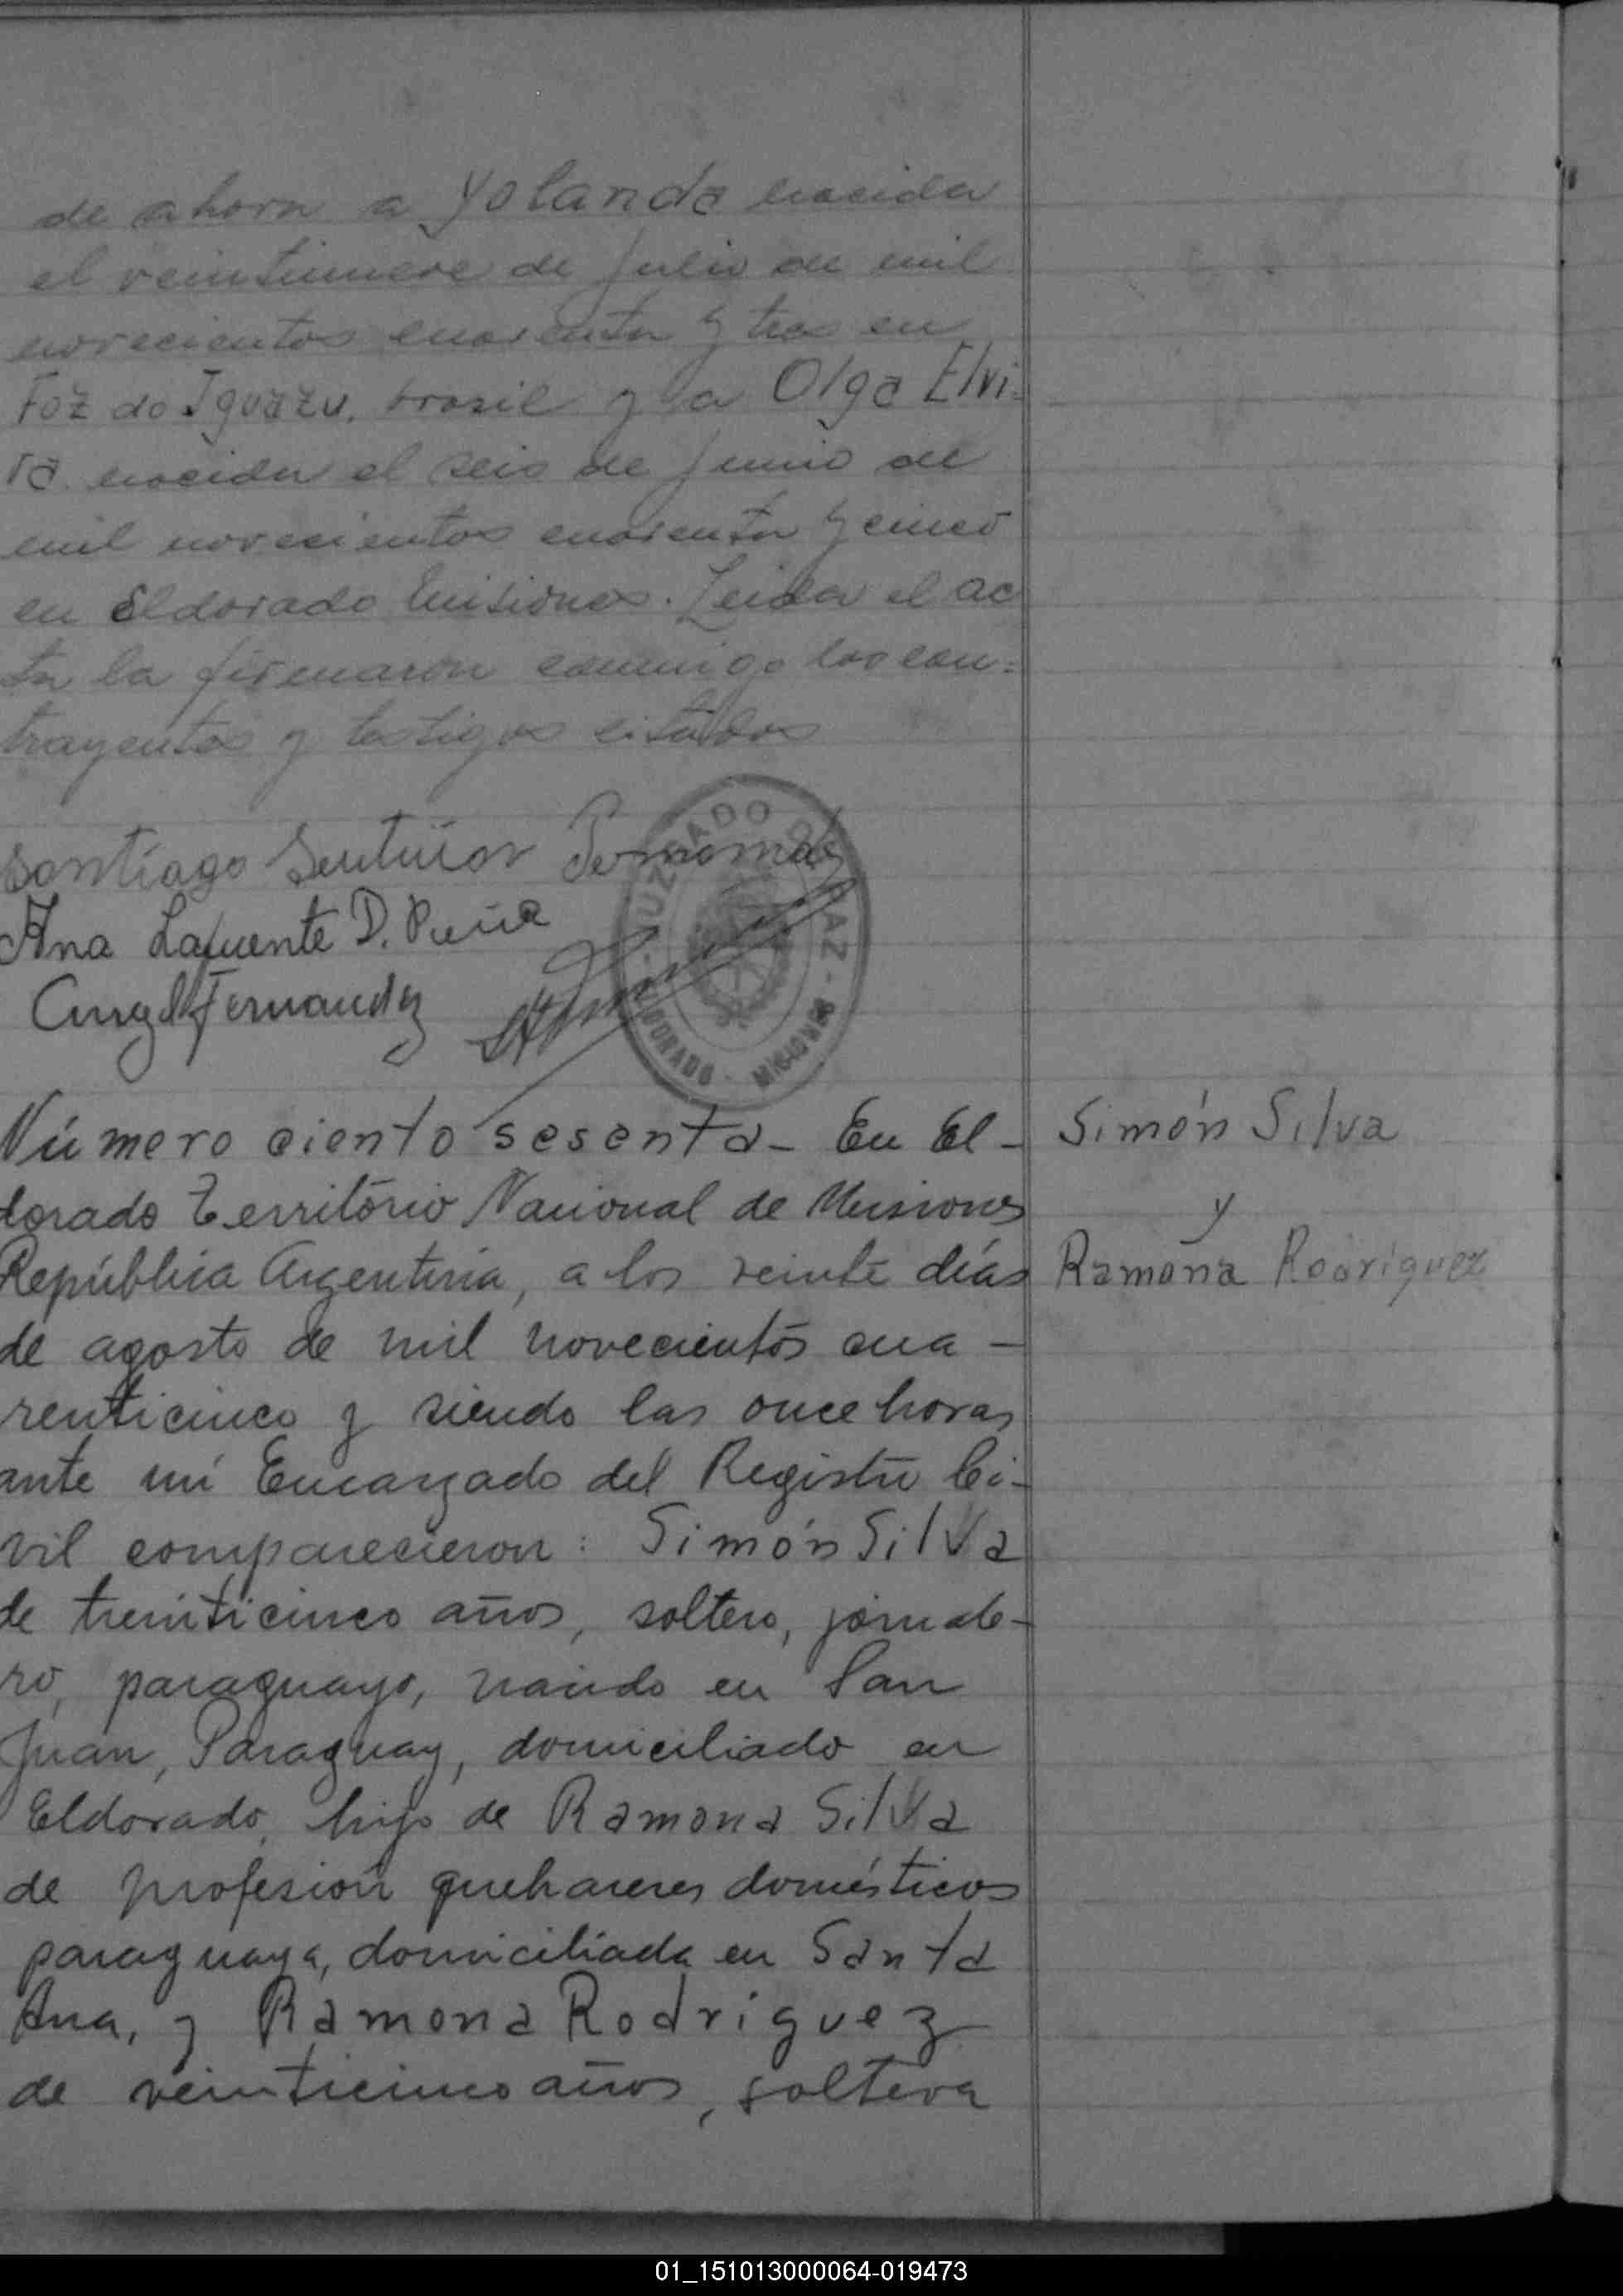 de ahora a Yolanda nacida
el veintinueve de Julio de mil
novecientos cuarenta y tres en
Foz do Iguazu, brasil y a Olga Elvi=
ra nacida el seis de Junio de
mil novecientos cuarenta y cinco
en Eldorado Misiones. Leida el ac
ta la firmaron conmigo los con=
trayentes y testigos citados
Santiago
JUZGADO DE PAZ - ELDORADO - MISIONES
Ana Lafuente D.
Angel Fernandez
Número ciento sesenta - En El-
dorado Território Nacional de Misiones
República Argentina, a los veinte días
de agosto de mil novecientos cua-
renticinco y siendo las once horas
ante mí Encargado del Registro Ci-
vil comparecieron: Simón Silva
de treinticinco años, soltero, jornale-
ro, paraguayo, nacido en San
Juan, Paraguay, domiciliado en
Eldorado, hijo de Ramona Silva
de profesión quehaceres domésticos
paraguaya, domiciliada en Santa
Ana, y Ramona Rodriguez
de veinticinco años, soltera
Simón Silva
y
Ramona Rodriguez
01_151013000064-019473